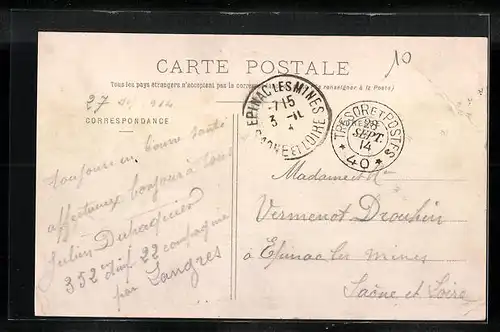 10
CARTE POSTALE
Tous les pays étrangers n'acceptent pas la corres renseigner à la Poste)
27 914
CORRESPONDANCE
EPINAC-LES-MINES
7 15
3 -11
SAONE ET LOIRE
TRESOR ET POSTES
28
SEPT.
14
* 40 *
toujours en bonne santé
affectueux bonjour à tous
Julien
352em d'inf 22 compagnie
par Langres
Madame et Mr
Vermenot Drouhin
à Epinac les mines
Saône et Loire